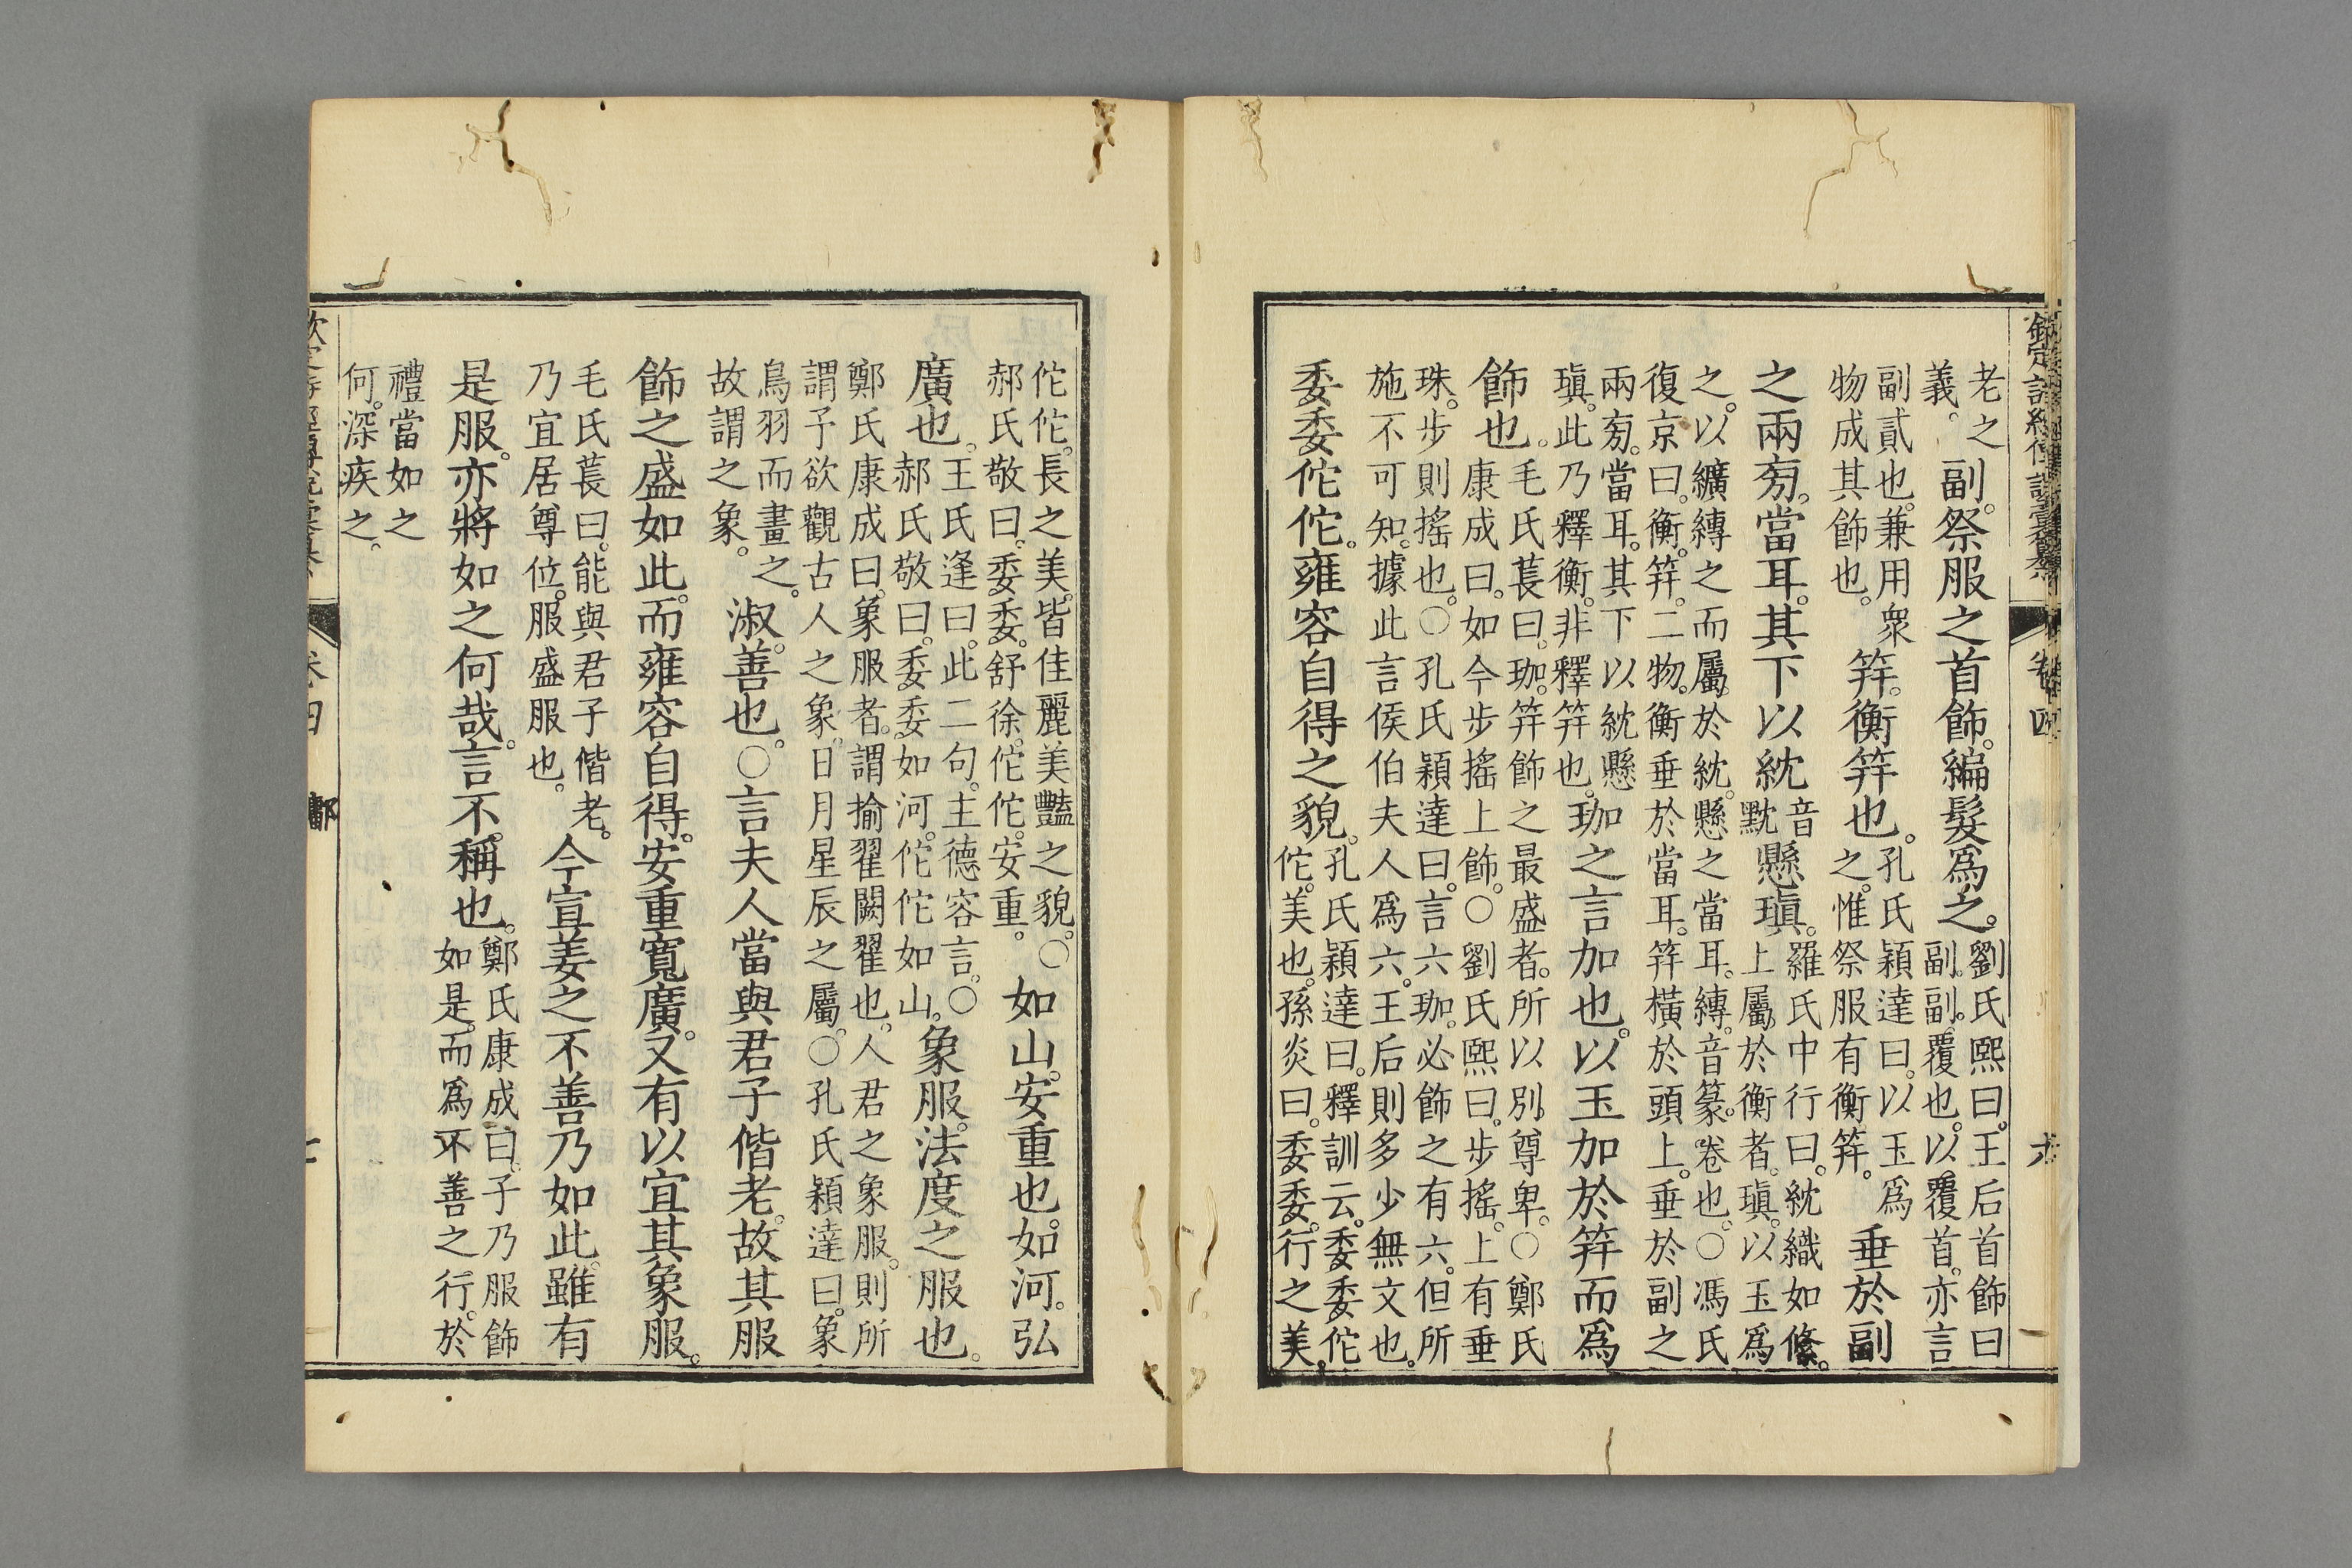 欽定詩經傳說彙纂 卷四
老之
義。
副。祭服之首飾。編髮爲之。
劉氏熙曰。王后首飾曰
副。副。覆也。以覆首。亦言
副貳也。兼用衆
物成其飾也。
筓。衡筓也。
孔氏穎達曰。以玉爲
之。惟祭服有衡筓。
垂於副
之兩旁。當耳。其下以紞
音
黕
懸瑱。
羅氏中行曰。紞織如絛。
上屬於衡者。瑱。以玉爲
之。以纊縛之而屬於紞。懸之當耳。縛。音篆。卷也。○馮氏
復京曰。衡。筓。二物。衡垂於當耳。筓橫於頭上。垂於副之
兩旁。當耳。其下以紞懸
瑱。此乃釋衡。非釋筓也。
珈之言加也。以玉加於筓而爲
飾也。
毛氏萇曰。珈。筓飾之最盛者。所以別尊卑。○鄭氏
康成曰。如今步搖上飾。○劉氏熙曰。步搖。上有垂
珠。步則搖也。○孔氏穎達曰。言六珈。必飾之有六。但所
施不可知。據此言侯伯夫人爲六。王后則多少無文也。
委委佗佗。雍容自得之貌。
孔氏穎達曰。釋訓云。委委佗
佗。美也。孫炎曰。委委。行之美。
佗佗。長之美。皆佳麗美豔之貌。○
郝氏敬曰。委委。舒徐。佗佗。安重。
如山。安重也。如河。弘
廣也。
王氏逢曰。此二句。主德容言。○
郝氏敬曰。委委如河。佗佗如山。
象服。法度之服也。
鄭氏康成曰。象服者。謂揄翟闕翟也。人君之象服。則所
謂予欲觀古人之象。日月星辰之屬。○孔氏穎達曰。象
鳥羽而畫之。
故謂之象。
淑。善也。○言夫人當與君子偕老。故其服
飾之盛如此。而雍容自得。安重寬廣。又有以宜其象服。
毛氏萇曰。能與君子偕老。
乃宜居尊位。服盛服也。
今宣姜之不善乃如此。雖有
是服。亦將如之何哉。言不稱也。
鄭氏康成曰。子乃服飾
如是。而爲不善之行。於
禮當如之
何。深疾之。
鄘